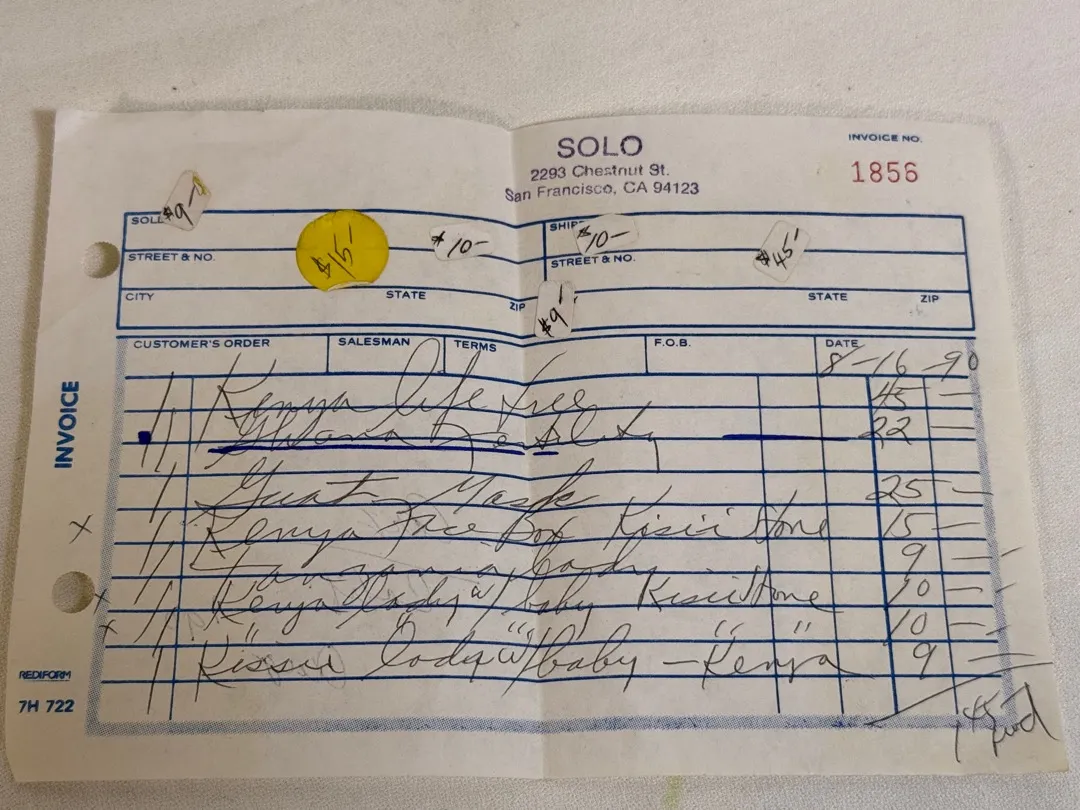 SOLO
2293 Chestnut St.
San Francisco, CA 94123
INVOICE NO.
1856
SOLD $9-
SHIP $10-
$15-
$10-
$45-
STREET & NO.
STREET & NO.
CITY STATE ZIP
$9-
STATE ZIP
CUSTOMER'S ORDER SALESMAN TERMS F.O.B. DATE
8-16-90
1 Kenya life tree 45 —
1 Ghana Fertility 22 —
1 Guat. Mask 25 —
x 1 Kenya Face Box Kisii Stone 15 —
1 Tanzania lady 9 —
x 1 Kenya lady w/baby Kisii Stone 10 —
x 1 " " " " " 10 —
1 Kissii lady w/baby — Kenya 9 —
145
INVOICE
REDIFORM
7H 722